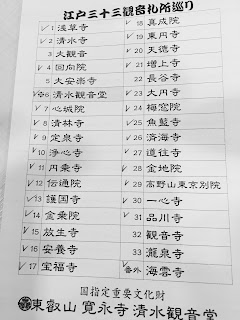 江戸三十三観音札所巡り
✓ 1 浅草寺
✓ 2 清水寺
3 大観音
✓ 4 回向院
5 大安楽寺
✓ 6 清水観音堂
✓ 7 心城院
✓ 8 清林寺
✓ 9 定泉寺
✓ 10 浄心寺
✓ 11 円乗寺
✓ 12 伝通院
✓ 13 護国寺
✓ 14 金乗院
✓ 15 放生寺
✓ 16 安養寺
✓ 17 宝福寺
✓ 18 真成院
✓ 19 東円寺
✓ 20 天徳寺
✓ 21 増上寺
22 長谷寺
✓ 23 大円寺
✓ 24 梅窓院
✓ 25 魚籃寺
✓ 26 済海寺
✓ 27 道往寺
✓ 28 金地院
✓ 29 高野山東京別院
✓ 30 一心寺
✓ 31 品川寺
32 観音寺
33 瀧泉寺
✓ 番外 海雲寺
国指定重要文化財
東叡山 寛永寺 清水観音堂